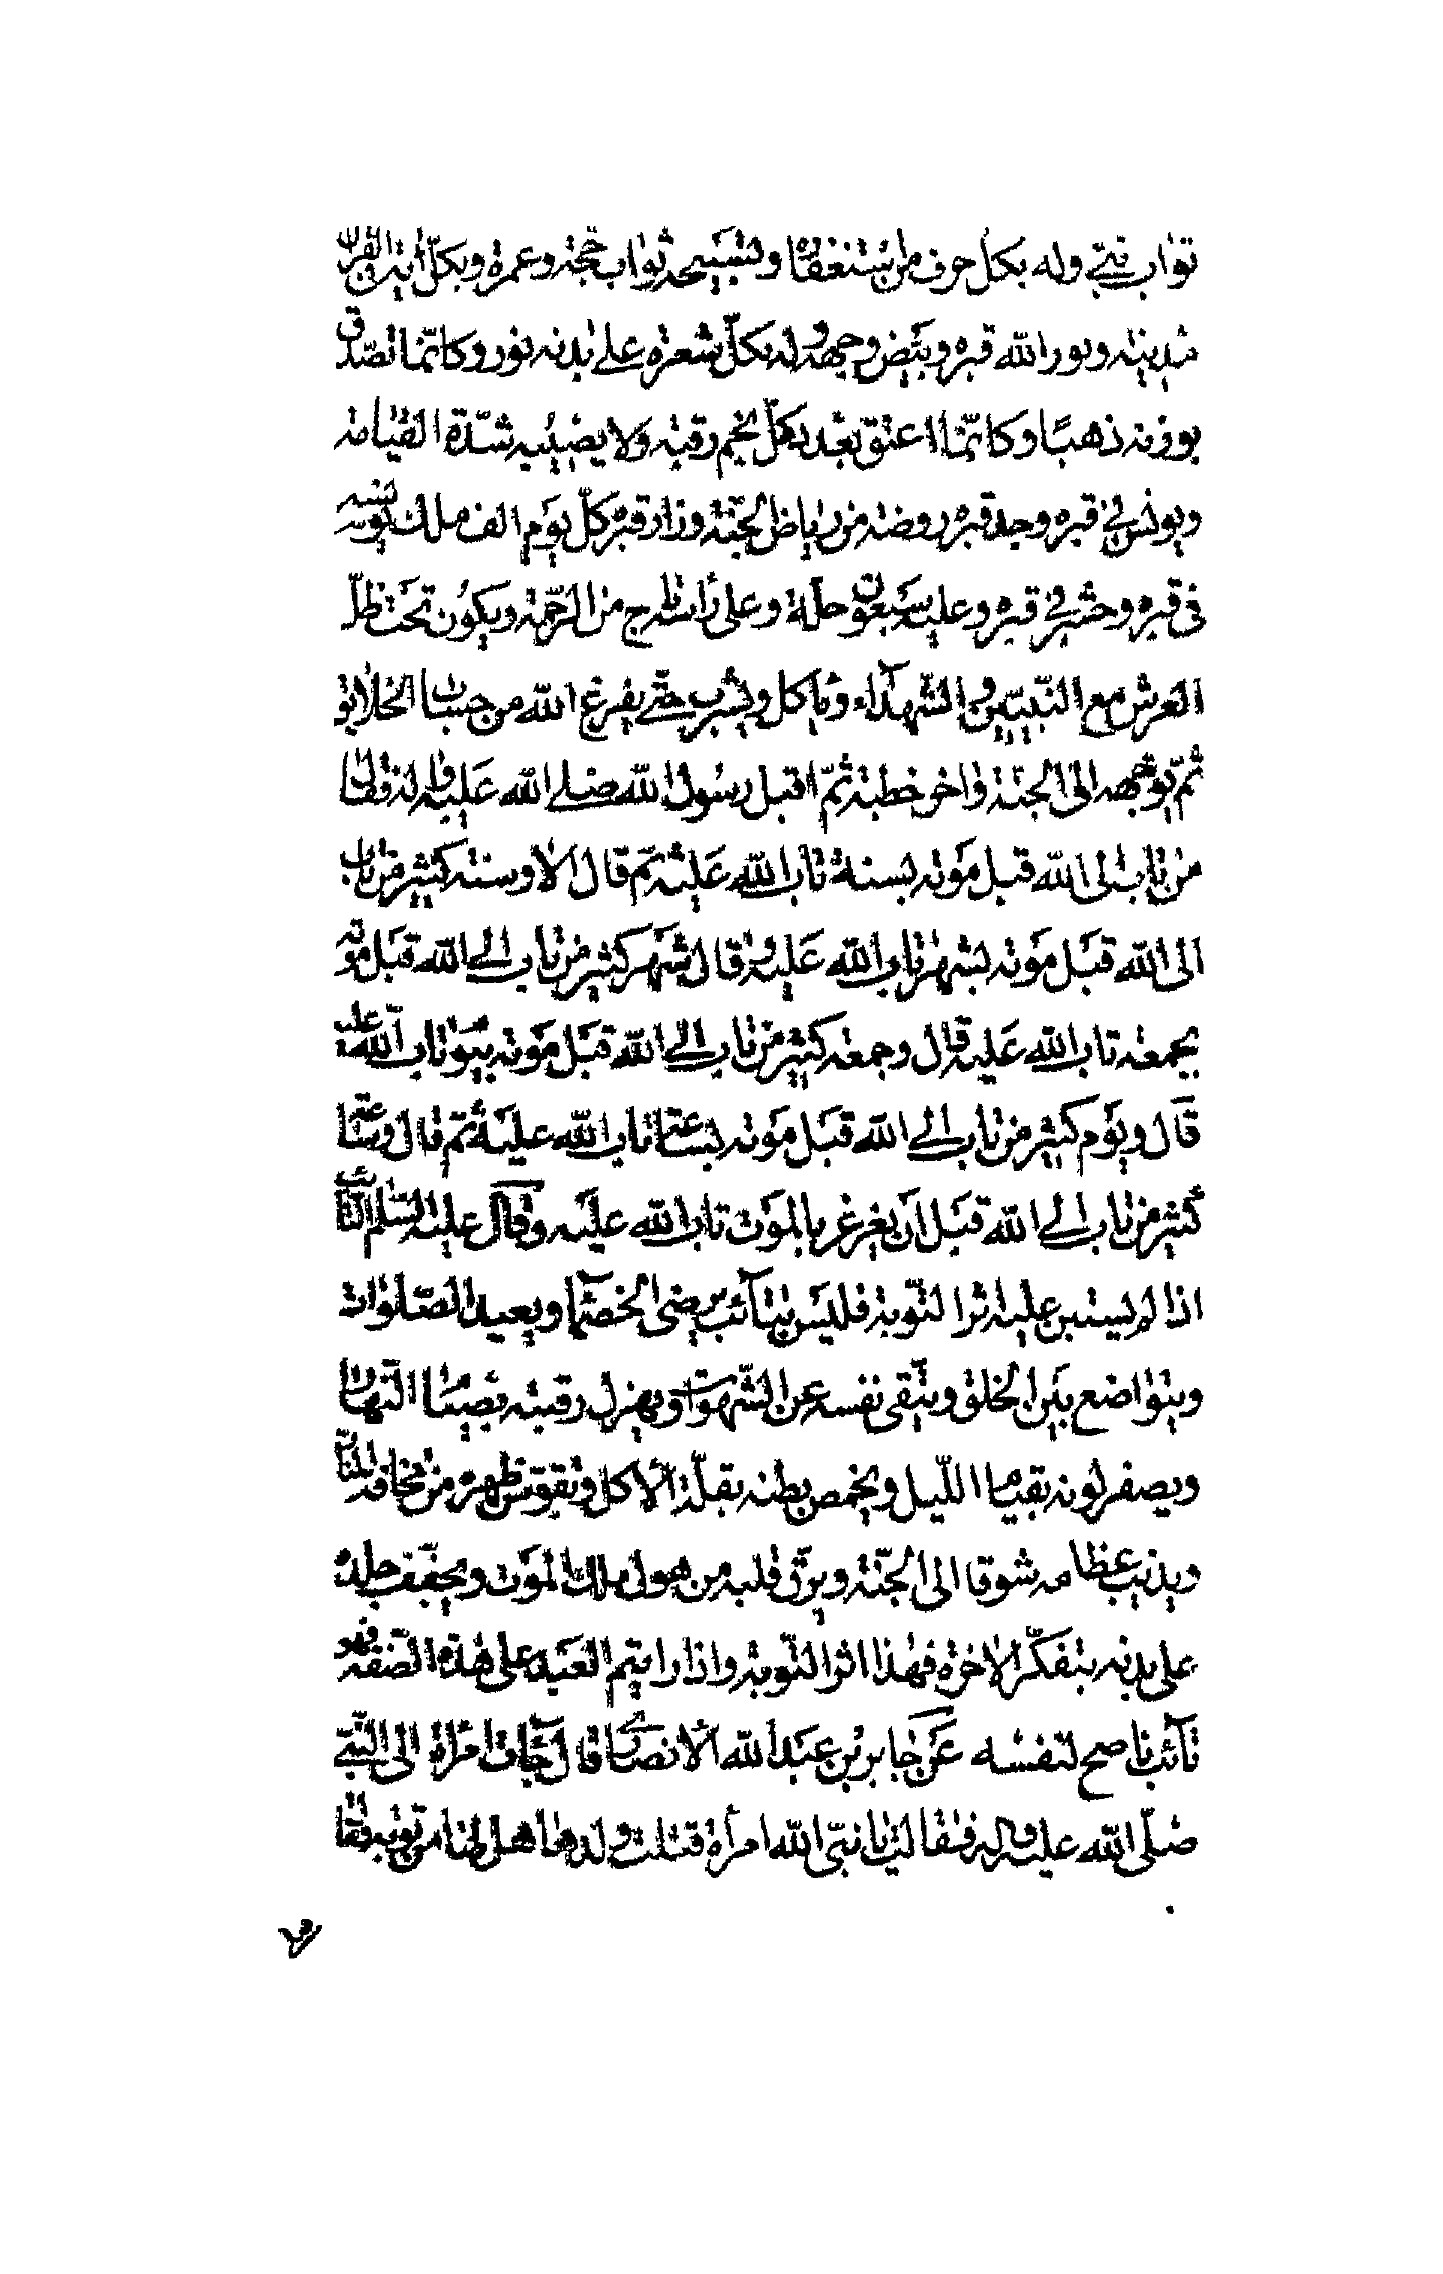 ثواب نبي وله بكل حرف من استغفاره وتسبيحه ثواب حجة وعمرة وبكل آية من القرآن
مدينة ونور الله قبره وبيض وجهه وله بكل شعرة على بدنه نور وكانما تصدق
بوزنه ذهبا وكانما اعتق بعدد كل نجم رقبة ولا يصيبه شدة القيامة
ويونس في قبره وجد قبره روضة من رياض الجنة وزار قبره كل يوم الف ملك يونسه
في قبره وحشر في قبره وعليه سبعون حلة وعلى رأسه تاج من الرحمة ويكون تحت ظل
العرش مع النبيين والشهداء وياكل ويشرب حتى يفرغ الله من حساب الخلايق
ثم يوجهه الى الجنة واخر خطبة ثم اقبل رسول الله صلى الله عليه واله فقال
من تاب الى الله قبل موته بسنة تاب الله عليه ثم قال الا وسنة كثير من تاب
الى الله قبل موته بشهر تاب الله عليه وقال شهر كثير من تاب الى الله قبل موته
بجمعة تاب الله عليه قال وجمعة كثير من تاب الى الله قبل موته بيوم تاب الله عليه
قال ويوم كثير من تاب الى الله قبل موته بساعة تاب الله عليه ثم قال وساعة
كثير من تاب الى الله قبل ان يغرغر بالموت تاب الله عليه وقال عليه السلام التائب
اذا لم يستبن عليه اثر التوبة فليس بتائب يرضى الخصماء ويعيد الصلوات
ويتواضع بين الخلق ويتقى نفسه عن الشهوات ويهزل رقبته بصيام النهار
ويصفر لونه بقيام الليل ويخمص بطنه بقلة الاكل وتقوس ظهره من مخافة النار
ويذيب عظامه شوقا الى الجنة ويرق قلبه من هول ملك الموت ويجفف جلده
على بدنه بتفكر الاخرة فهذا اثر التوبة واذا رايتم العبد على هذه الصفة فهو
تائب ناصح لنفسه عن جابر بن عبد الله الانصاري قال جائت امرأة الى النبي
صلى الله عليه واله فقالت يا نبي الله امرأة قتلت ولدها هل لها من توبة فقال